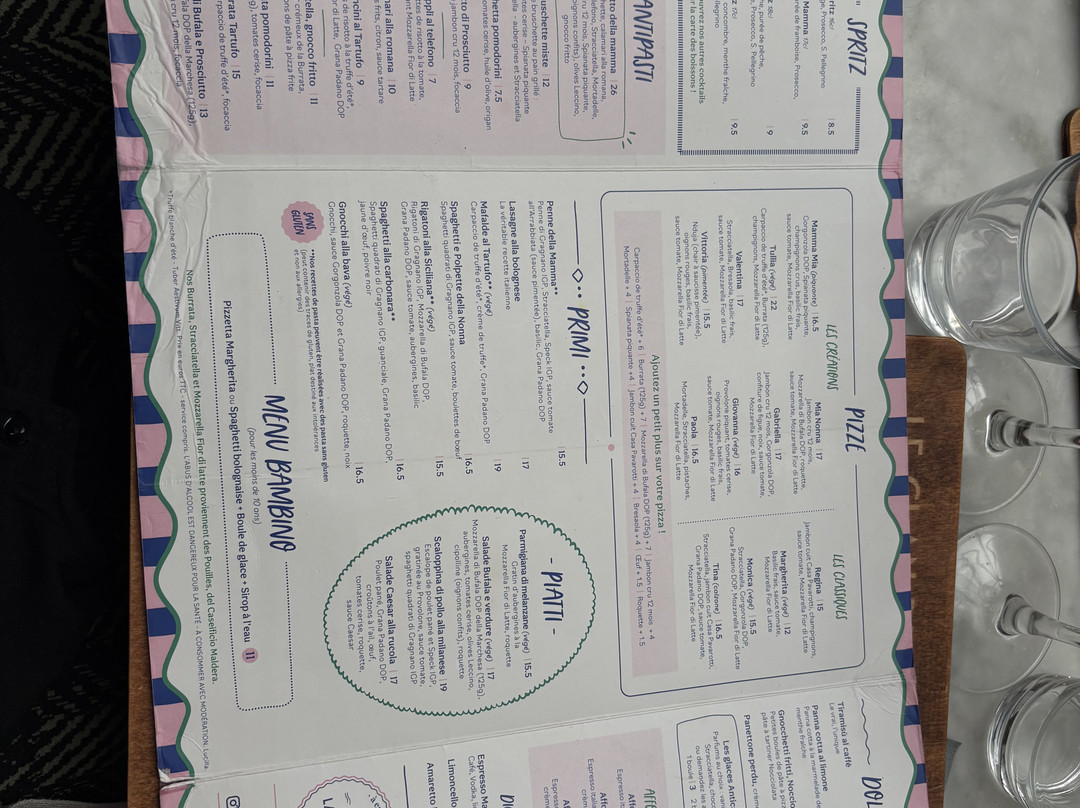 SPRITZ
| 8.5
Mamma 17cl | 9.5
purée de framboise, Prosecco,
S. Pellegrino
| 9
purée de pêche,
Prosecco, S. Pellegrino
| 9.5
concombre, menthe fraîche,
nos autres cocktails
la carte des boissons !
ANTIPASTI
della mamma | 26
calamari alla romana,
telefono, Stracciatella, Mortadelle,
cru 12 mois, Spianata piquante,
(oignons confits), olives Leccino,
gnocco fritto
bruschette miste | 12
bruschette au pain grillé :
cerise - Spianata piquante
- aubergines et Stracciatella
pomodorini | 7.5
tomates cerise, huile d'olive, origan
di Prosciuto | 9
jambon cru 12 mois, focaccia
al telefono | 7
de risotto à la tomate,
Mozzarella Fior di Latte
al Tartufo | 9
de risotto à la truffe d'été*,
di Latte, Grana Padano DOP
alla romana | 10
frits, citron, sauce tartare
gnocco fritto | 11
crémeux de la Burrata,
de pâte à pizza frite
pomodorini | 11
tomates cerise, focaccia
Tartufo | 15
carpaccio de truffe d'été*, focaccia
di Bufala e Prosciutto | 13
di Bufala DOP della Marchesa (125g),
cru 12 mois, focaccia
PIZZE
LES CRÉATIONS
Mamma Mia (piquante) | 16.5
Gorgonzola DOP, Spianata piquante,
champignons crus, basilic frais,
sauce tomate, Mozzarella Fior di Latte
Tullia (végé) | 22
Carpaccio de truffe d'été*, Burrata (125g),
champignons, Mozzarella Fior di Latte
Valentina | 17
Stracciatella, Bresaola, basilic frais,
sauce tomate, Mozzarella Fior di Latte
Vittoria (pimentée) | 15.5
Nduja (chair à saucisse pimentée),
oignons rouges, basilic frais,
sauce tomate, Mozzarella Fior di Latte
Mia Nonna | 17
Jambon cru 12 mois,
Mozzarella di Bufala DOP, roquette,
sauce tomate, Mozzarella Fior di Latte
Gabriella | 17
Jambon cru 12 mois, Gorgonzola DOP,
confiture de figue, noix, sauce tomate,
Mozzarella Fior di Latte
Giovanna (végé) | 16
Provolone piquant, tomates cerise,
oignons rouges, basilic frais,
sauce tomate, Mozzarella Fior di Latte
Paola | 16.5
Mortadelle, Stracciatella, pistaches,
Mozzarella Fior di Latte
LES CLASSIQUES
Regina | 15
Jambon cuit Casa Pavarotti, champignons,
sauce tomate, Mozzarella Fior di Latte
Margherita (végé) | 12
Basilic frais, sauce tomate,
Mozzarella Fior di Latte
Monica (végé) | 15.5
Stracciatella, Gorgonzola DOP,
Grana Padano DOP, Mozzarella Fior di Latte
Tina (calzone) | 16.5
Stracciatella, jambon cuit Casa Pavarotti,
Grana Padano DOP, sauce tomate,
Mozzarella Fior di Latte
Ajoutez un petit plus sur votre pizza !
Carpaccio de truffe d'été* + 6 | Burrata (125g) + 7 | Mozzarella di Bufala DOP (125g) + 7 | Jambon cru 12 mois + 4
Mortadelle + 4 | Spianata piquante + 4 | Jambon cuit Casa Pavarotti + 4 | Bresaola + 4 | Œuf + 1.5 | Roquette + 1.5
PRIMI
Penne della Mamma** | 15.5
Penne di Gragnano IGP, Stracciatella, Speck IGP, sauce tomate
all'Arrabbiata (sauce pimentée), basilic, Grana Padano DOP
Lasagne alla bolognese | 17
La véritable recette italienne
Mafalde al Tartufo** (végé) | 19
Carpaccio de truffe d'été*, crème de truffe*, Grana Padano DOP
Spaghetti e Polpette della Nonna | 16.5
Spaghetti quadrati di Gragnano IGP, sauce tomate, boulettes de bœuf
Rigatoni alla Siciliana** (végé) | 15.5
Rigatoni di Gragnano IGP, Mozzarella di Bufala DOP,
Grana Padano DOP, sauce tomate, aubergines, basilic
Spaghetti alla carbonara** | 16.5
Spaghetti quadrati di Gragnano IGP, guanciale, Grana Padano DOP,
jaune d'œuf, poivre noir
Gnocchi alla bava (végé) | 16.5
Gnocchi, sauce Gorgonzola DOP et Grana Padano DOP, roquette, noix
SANS
GLUTEN
**Nos recettes de pasta peuvent être réalisées avec des pasta sans gluten
(peut contenir des traces de gluten, plat destiné aux intolérances
et non aux allergies)
- PIATTI -
Parmigiana di melanzane (végé) | 15.5
Gratin d'aubergines à la
Mozzarella Fior di Latte, roquette
Salade Bufala e verdure (végé) | 17
Mozzarella di Bufala DOP della Marchesa (125g),
aubergines, tomates cerise, olives Leccino,
cipolline (oignons confits), roquette
Scaloppina di pollo alla milanese | 19
Escalope de poulet pané et Speck IGP,
gratinée au Provolone, sauce tomate,
spaghetti quadrati di Gragnano IGP
Salade Caesar alla rucola | 17
Poulet pané, Grana Padano DOP,
croûtons à l'ail, œuf,
tomates cerise, roquette,
sauce Caesar
MENU BAMBINO
(pour les moins de 10 ans)
Pizzetta Margherita ou Spaghetti bolognaise + Boule de glace + Sirop à l'eau 11
Nos Burrata, Stracciatella et Mozzarella Fior di latte proviennent des Pouilles, del Caseificio Maldera.
*Truffe blanche d'été - Tuber Aestivum Vitt. Prix en euros TTC - service compris. L'ABUS D'ALCOOL EST DANGEREUX POUR LA SANTÉ - À CONSOMMER AVEC MODÉRATION. Lucilla
DOL
Tiramisù al caffè
Le vrai, l'unique
Panna cotta al limone
Panna cotta à la marmelade de
menthe fraîche
Gnocchetti fritti, Noccio
Petites boules de pâte à pizza
pâte à tartiner Nocciolata
Panettone perdu, crème
Les glaces Antic
Parfums au choix : van
Stracciatella, choco
ou demandez les
1 boule | 3 2
AFF
Affo
Espresso
crème
Affo
Espresso ita
crème
Aff
crème
DI
Espresso Ma
Café, Vodka, li
Limoncello
Amaretto
LA